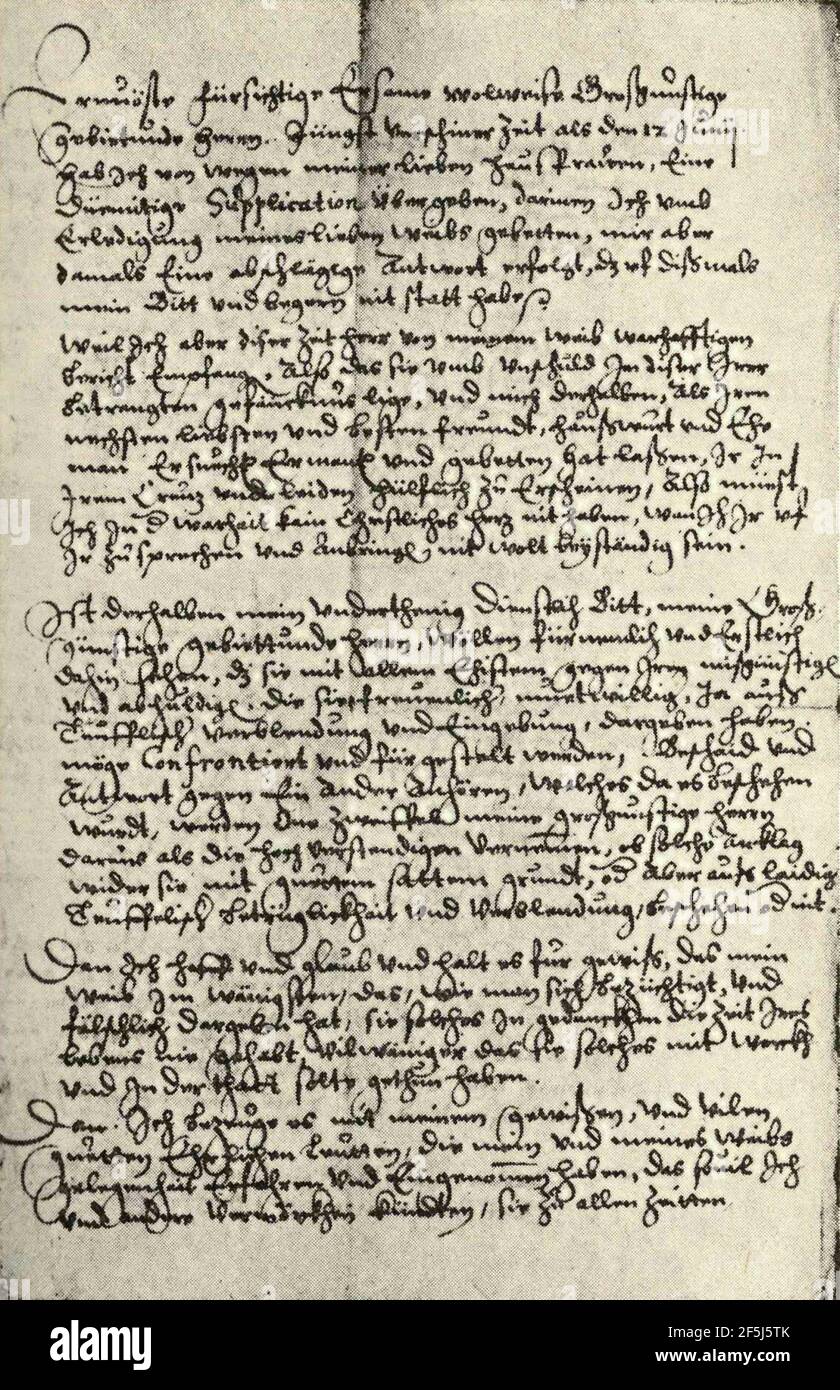 Ernvöste fürsichtige Ersame wolweise Großgünstige
gebietunde Herrn. Jüngst verschiner Zeit als den 12 Junij
hab Ich von wegen meiner lieben Hausfrauen, Eine
Diemütige Supplication übergeben, darinen Ich umb
Erledigung meines lieben Weibs gebetten, mir aber
damals Eine abschlägige Antwort erfolgt, dz uf dißmals
mein Bitt und begern nit statt habe
Weil Ich aber diser Zeit her von meinem Weib warhafftigen
bericht Empfang, Also das sie umb unschuld In diser Irer
betrangten gefäncknus lige, und mich derhalben, als Iren
nechsten liebsten und besten freundt, haußwürt und Ehe
man Ersucht Ermant und gebetten hat laßen, Ir In
Irem Creuz und leiden hülflich zu Erscheinen, Also müest
Ich In d warheit kain Christliches herz nit haben, wan Ich Ir uf
Ir zusprechen und Anbringen nit wolt beyständig sein.
Ist derhalben mein underthenig Dienstlich Bitt, meine Groß
günstige gebiettunde herrn, wöllen fürnemlich und Erstlich
dahin sehen, dz sie mit allem gegen Iren mißgünstigen
und die sie freuenlich, muetwillig, Ia auß
Teufflisch verblendung und Eingebung, dargeben haben.
möge Confrontiert und fürgestelt werden, Beschaid und
Antwort gegen Ein Ander Anhören, welches da es beschehen
wurdt, werden One zweiffel meine großgünstige herrn
daruus als die hoch verstendigen vernemen, ob solche Anklag
wider sie mit guettem sattem grundt, od Aber auß laidig
Teuffelisch betrüglickhait und Verblendung, beschehen od nit.
Dan Ich hoff und glaub und halt es für gewiß, das mein
Weib Im wänigsten, das, wie man sich bezüchtigt, und
fälschlich dargeben hat, sie solches In gedanckhen die Zeit Ires
lebens nie gehabt, vil wäniger das sie solches mit Werckh
und In der thatt solte gethun haben.
Dan Ich bezeuge es mit meinem gewißen, und vilen
guetten Ehrlichen Leutten, die mein und meines Weibs
gelegenheit Erfahren und Eingenomen haben, das souil Ich
und andere kündten, sie zu allen Zeitten
alamy
Image ID: 2F5J5TK
www.alamy.com